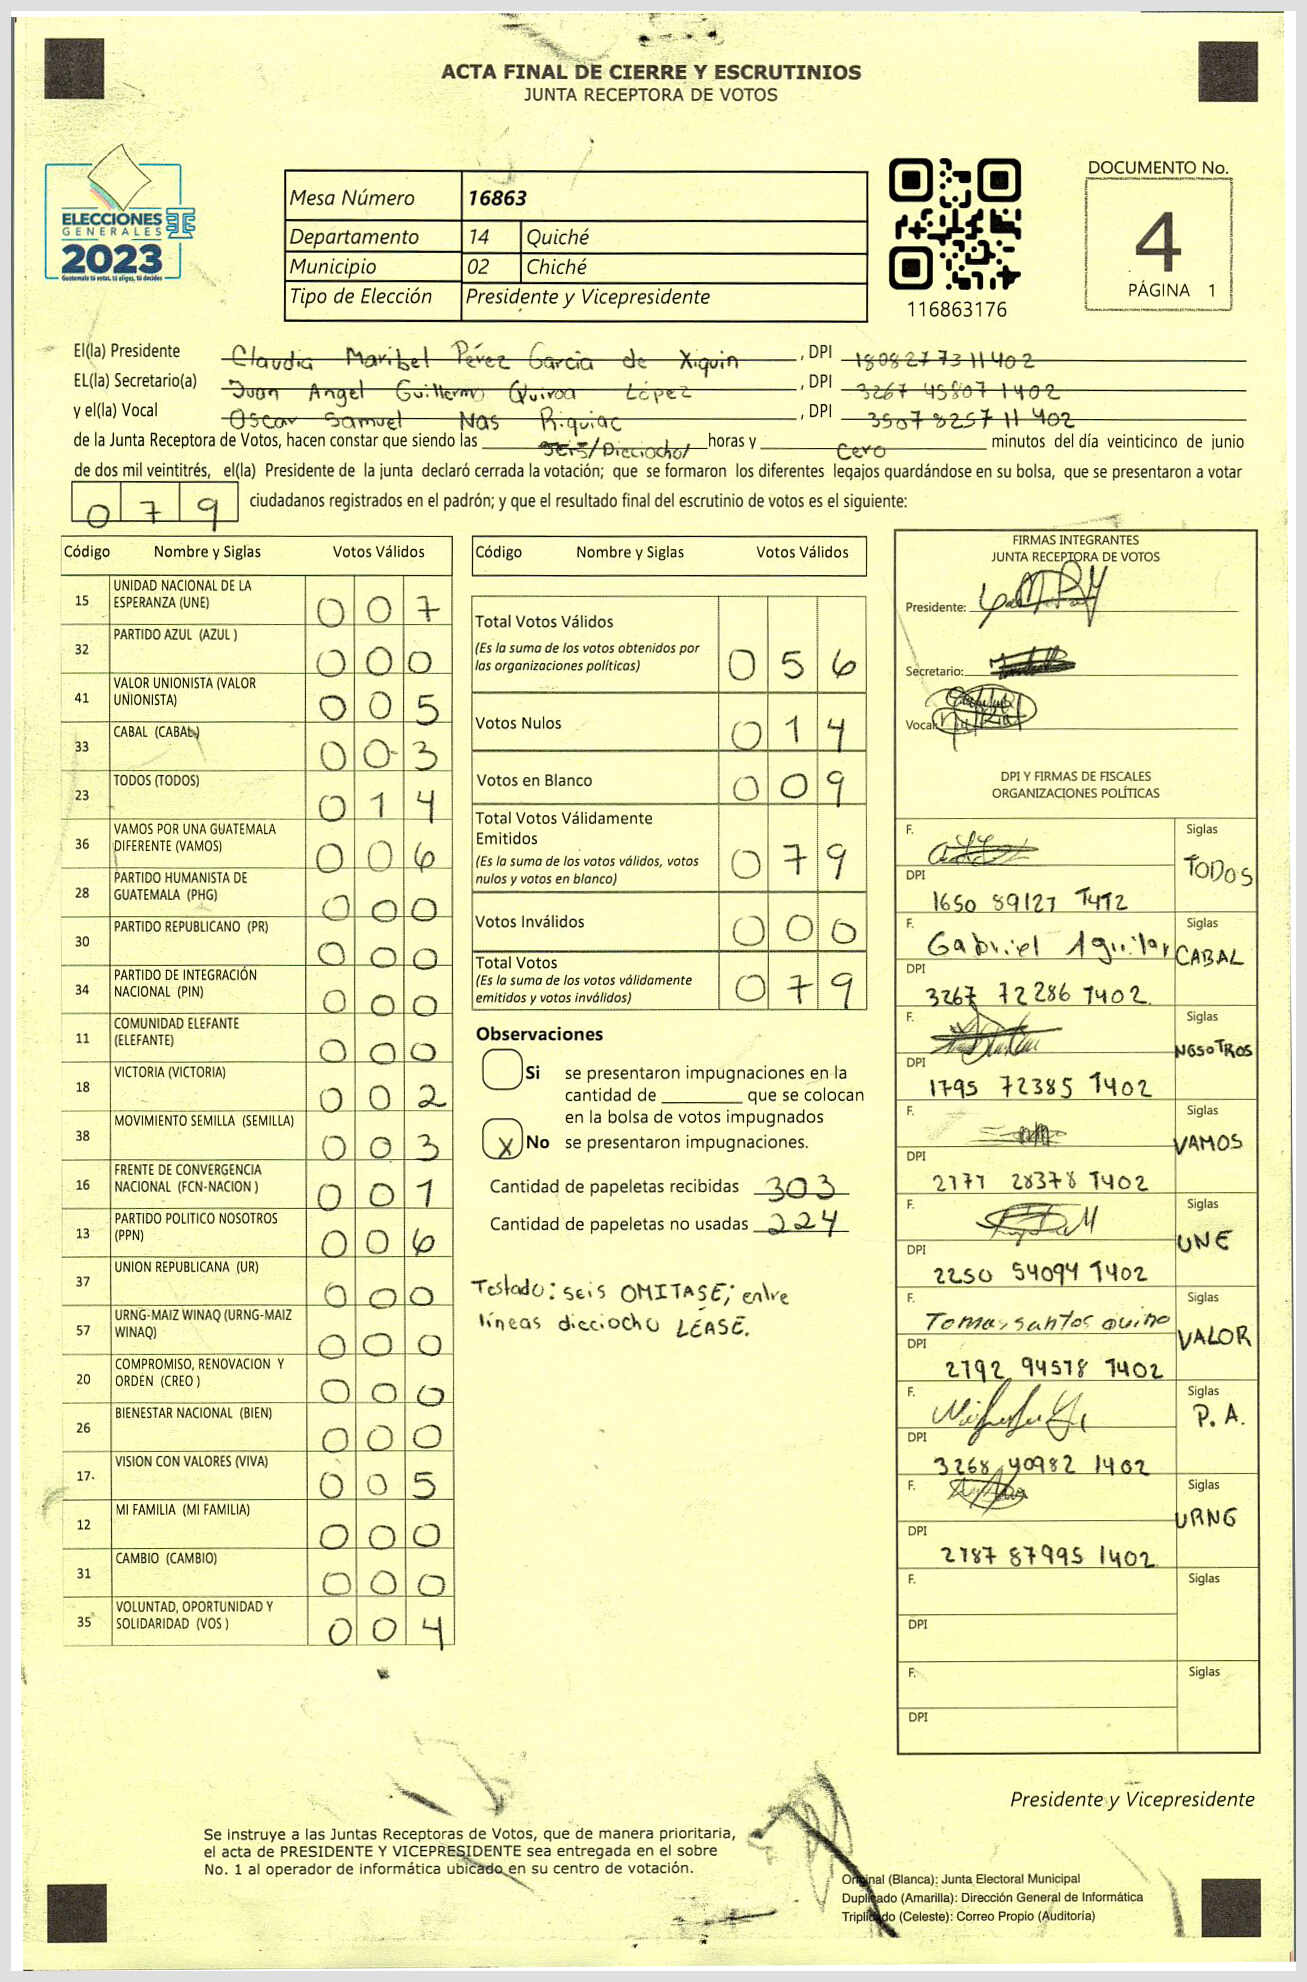 ACTA FINAL DE CIERRE Y ESCRUTINIOS
JUNTA RECEPTORA DE VOTOS
ELECCIONES
GENERALES
2023
Guatemala tú votas, tú eliges, tú decides
Mesa Número 16863
Departamento 14 Quiché
Municipio 02 Chiché
Tipo de Elección Presidente y Vicepresidente
116863176
DOCUMENTO No.
4
PÁGINA 1
El(la) Presidente Claudia Maribel Pérez García de Xiquin, DPI 1808277311402
EL(la) Secretario(a) Juan Angel Guillermo Quiroa López, DPI 3267 45807 1402
y el(la) Vocal Oscar Samuel Nas Riquiac, DPI 3507 8257 11 402
de la Junta Receptora de Votos, hacen constar que siendo las seis/Dicciocho/ horas y cero minutos del día veinticinco de junio
de dos mil veintitrés, el(la) Presidente de la junta declaró cerrada la votación; que se formaron los diferentes legajos guardándose en su bolsa, que se presentaron a votar
079 ciudadanos registrados en el padrón; y que el resultado final del escrutinio de votos es el siguiente:
Código Nombre y Siglas Votos Válidos
15 UNIDAD NACIONAL DE LA ESPERANZA (UNE) 007
32 PARTIDO AZUL (AZUL ) 000
41 VALOR UNIONISTA (VALOR UNIONISTA) 005
33 CABAL (CABAL) 003
23 TODOS (TODOS) 014
36 VAMOS POR UNA GUATEMALA DIFERENTE (VAMOS) 006
28 PARTIDO HUMANISTA DE GUATEMALA (PHG) 000
30 PARTIDO REPUBLICANO (PR) 000
34 PARTIDO DE INTEGRACIÓN NACIONAL (PIN) 000
11 COMUNIDAD ELEFANTE (ELEFANTE) 000
18 VICTORIA (VICTORIA) 002
38 MOVIMIENTO SEMILLA (SEMILLA) 003
16 FRENTE DE CONVERGENCIA NACIONAL (FCN-NACION ) 001
13 PARTIDO POLITICO NOSOTROS (PPN) 006
37 UNION REPUBLICANA (UR) 000
57 URNG-MAIZ WINAQ (URNG-MAIZ WINAQ) 000
20 COMPROMISO, RENOVACION Y ORDEN (CREO ) 000
26 BIENESTAR NACIONAL (BIEN) 000
17 VISION CON VALORES (VIVA) 005
12 MI FAMILIA (MI FAMILIA) 000
31 CAMBIO (CAMBIO) 000
35 VOLUNTAD, OPORTUNIDAD Y SOLIDARIDAD (VOS ) 004
Código Nombre y Siglas Votos Válidos
Total Votos Válidos 056
(Es la suma de los votos obtenidos por
las organizaciones políticas)
Votos Nulos 014
Votos en Blanco 009
Total Votos Válidamente
Emitidos 079
(Es la suma de los votos válidos, votos
nulos y votos en blanco)
Votos Inválidos 000
Total Votos 079
(Es la suma de los votos válidamente
emitidos y votos inválidos)
Observaciones
Si se presentaron impugnaciones en la
cantidad de ________ que se colocan
en la bolsa de votos impugnados
X No se presentaron impugnaciones.
Cantidad de papeletas recibidas 303
Cantidad de papeletas no usadas 224
Testado: seis OMITASE; entre
líneas dicciocho LÉASE.
FIRMAS INTEGRANTES
JUNTA RECEPTORA DE VOTOS
Presidente:
Secretario:
Vocal:
DPI Y FIRMAS DE FISCALES
ORGANIZACIONES POLÍTICAS
F. Siglas TODOS
DPI 1650 89127 1412
F. Gabriel Aguilar Siglas CABAL
DPI 3267 72286 1402
F. Siglas NOSOTROS
DPI 1795 72385 1402
F. Siglas VAMOS
DPI 2177 28378 1402
F. Siglas UNE
DPI 2250 54094 1402
F. Tomas santos quino Siglas VALOR
DPI 2792 94578 1402
F. Siglas P.A.
DPI 3268 40982 1402
F. Siglas URNG
DPI 2787 87995 1402
F. Siglas
DPI
F. Siglas
DPI
Presidente y Vicepresidente
Se instruye a las Juntas Receptoras de Votos, que de manera prioritaria,
el acta de PRESIDENTE Y VICEPRESIDENTE sea entregada en el sobre
No. 1 al operador de informática ubicado en su centro de votación.
Original (Blanca): Junta Electoral Municipal
Duplicado (Amarilla): Dirección General de Informática
Triplicado (Celeste): Correo Propio (Auditoría)